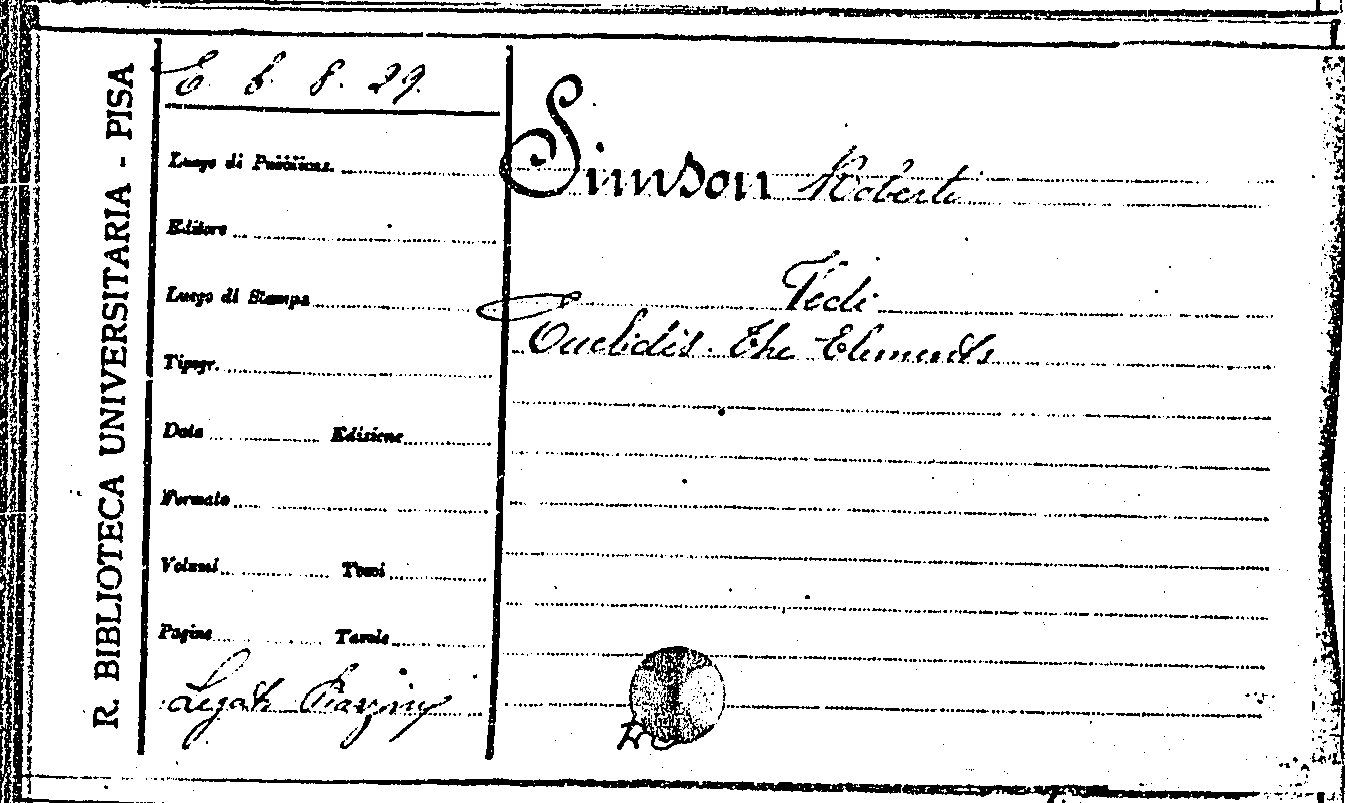 R. BIBLIOTECA UNIVERSITARIA - PISA
E b. 8. 29.
Luogo di Pubblicaz.
Editore
Luogo di Stampa
Tipogr.
Data Edizione
Formato
Volumi Tomi
Pagine Tavole
Legato
Simson Roberto
Vedi
Euclidis. The Elements